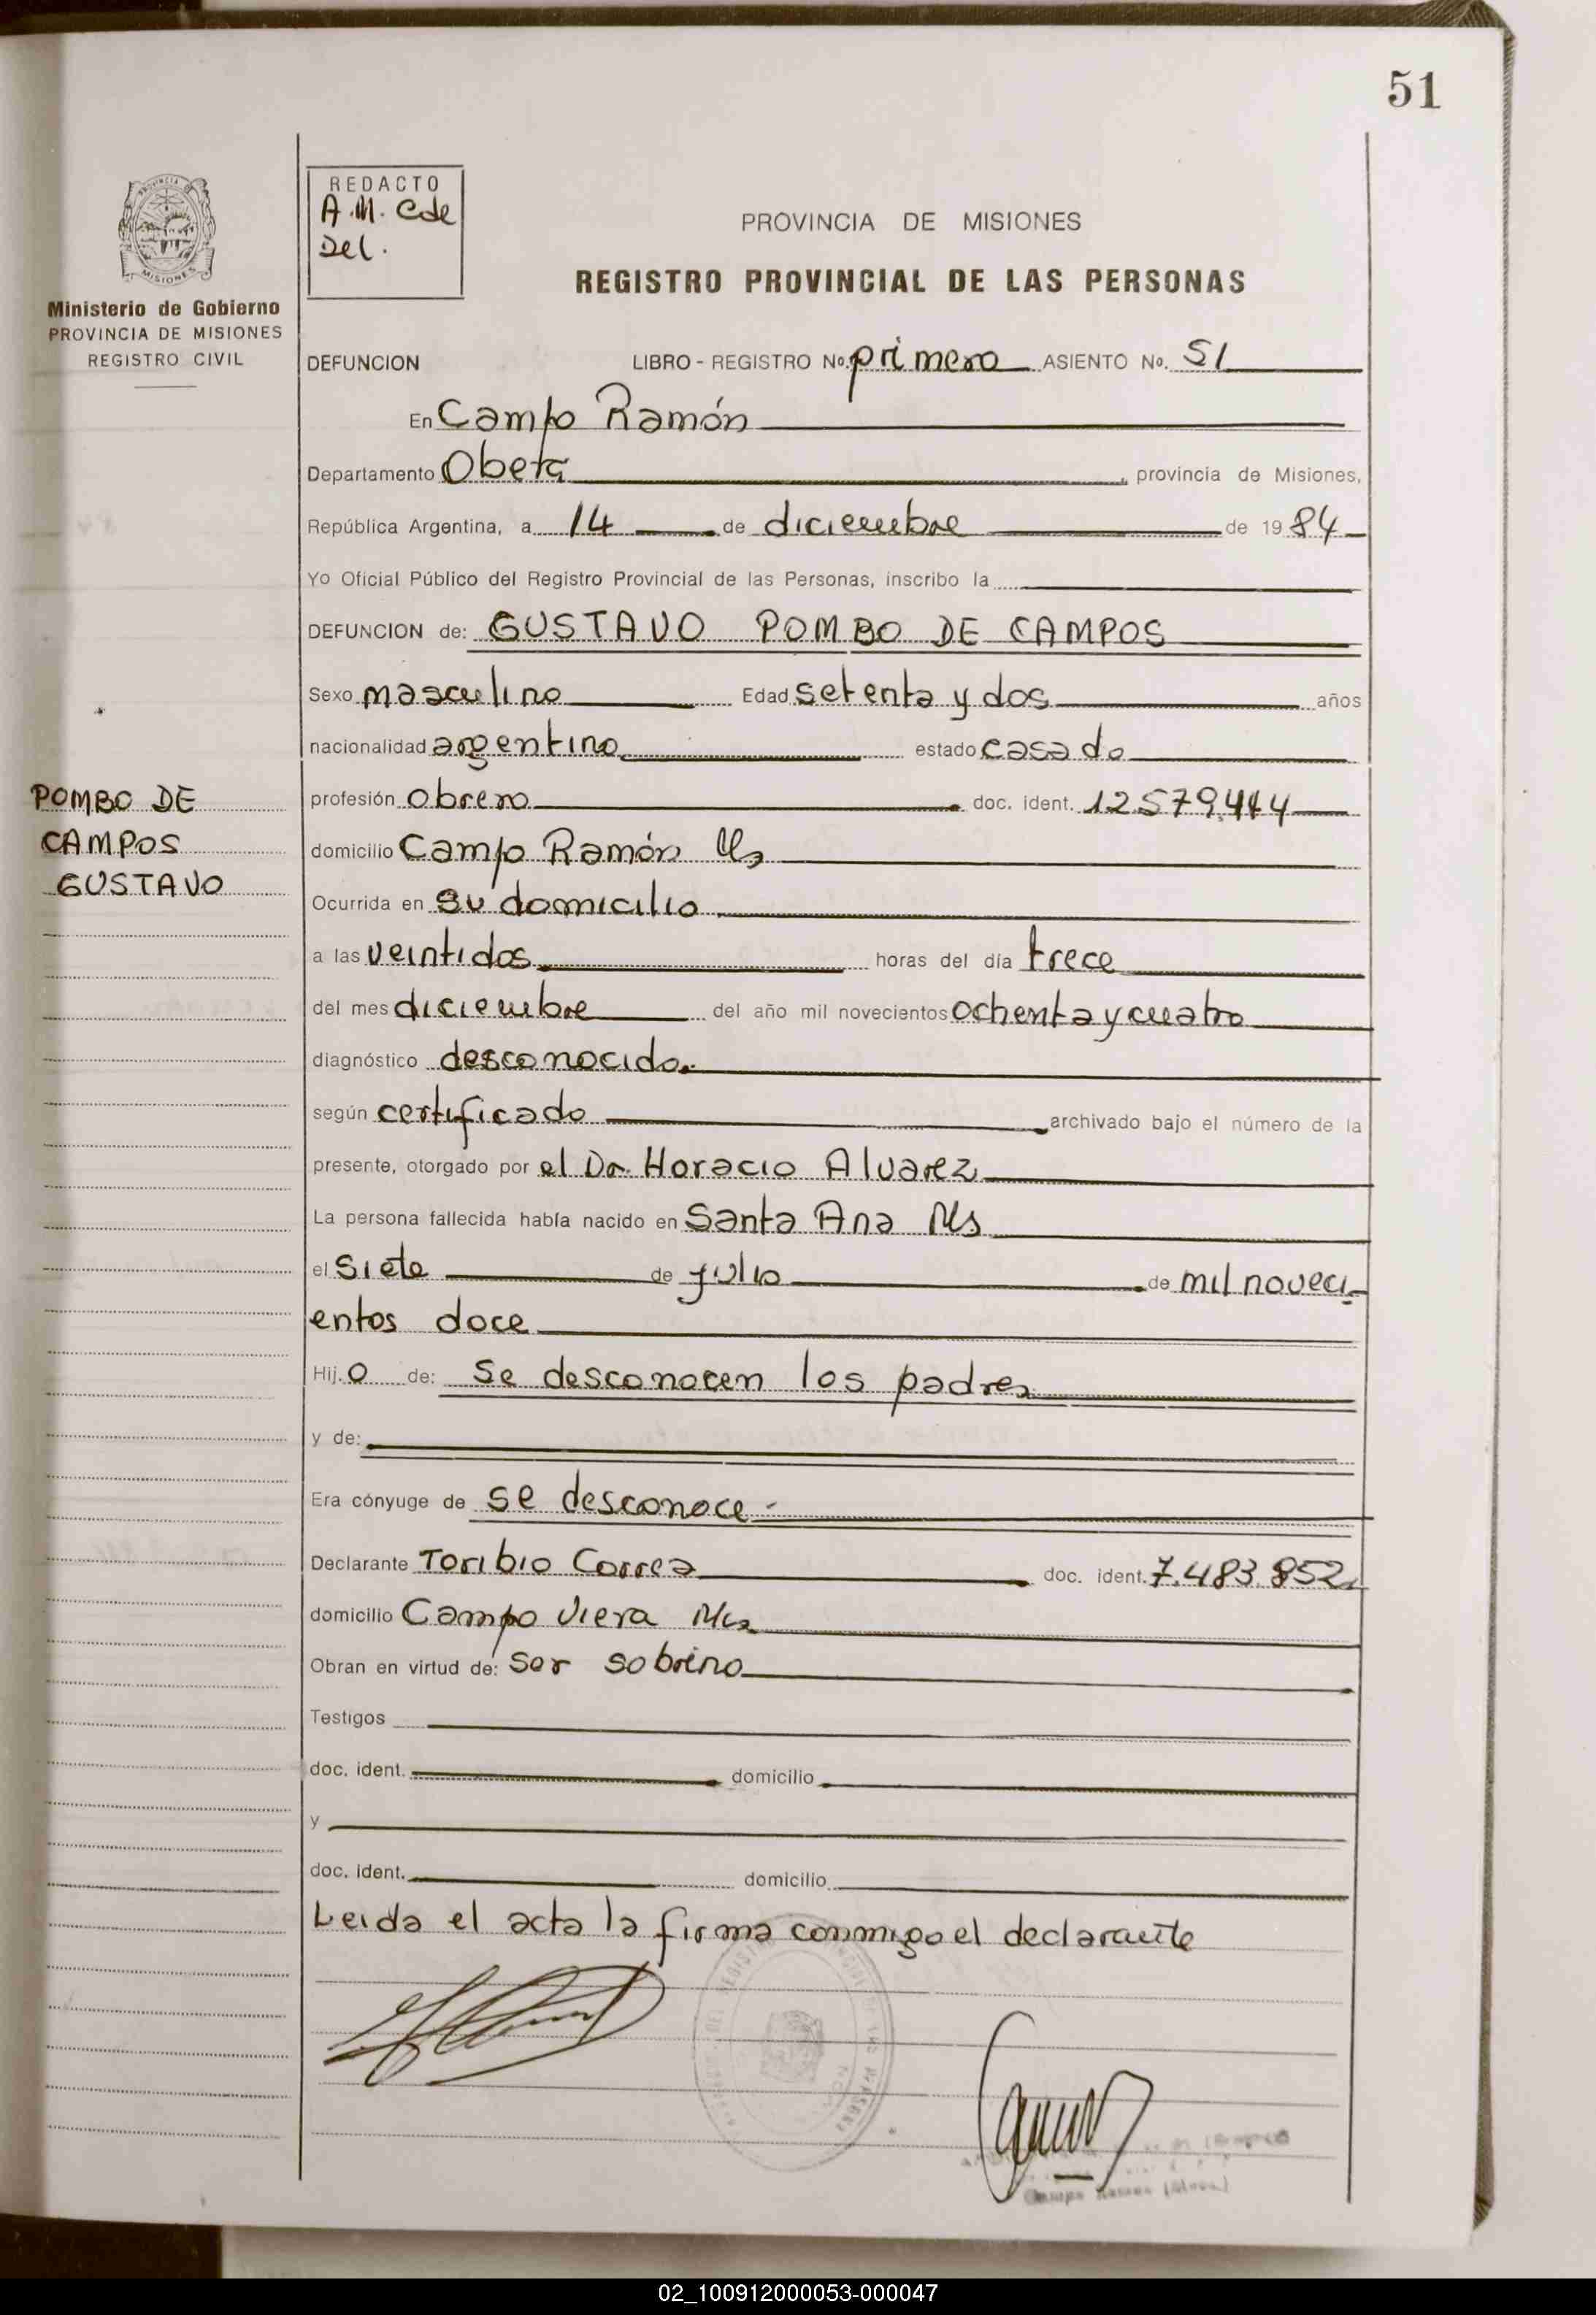 51
REDACTO
A.M. Cde
Del.
PROVINCIA DE MISIONES
REGISTRO PROVINCIAL DE LAS PERSONAS
Ministerio de Gobierno
PROVINCIA DE MISIONES
REGISTRO CIVIL
DEFUNCION LIBRO - REGISTRO No. primero ASIENTO No. 51
En Campo Ramón
Departamento Oberá, provincia de Misiones,
República Argentina, a 14 de diciembre de 1984
Yo Oficial Público del Registro Provincial de las Personas, inscribo la
DEFUNCION de: GUSTAVO POMBO DE CAMPOS
Sexo masculino Edad setenta y dos años
nacionalidad argentino estado casado
POMBO DE
CAMPOS
GUSTAVO
profesión obrero doc. ident. 12.579.444
domicilio Campo Ramón Ms
Ocurrida en su domicilio
a las veintidos horas del día trece
del mes diciembre del año mil novecientos ochenta y cuatro
diagnóstico desconocido.
según certificado archivado bajo el número de la
presente, otorgado por el Dr. Horacio Alvarez
La persona fallecida había nacido en Santa Ana Ms
el siete de julio de mil noveci-
entos doce
Hij.o de: Se desconocen los padres
y de:
Era cónyuge de se desconoce -
Declarante Toribio Correa doc. ident. 7.483.852
domicilio Campo Viera Mis
Obran en virtud de: ser sobrino
Testigos
doc. ident. domicilio
y
doc. ident. domicilio
Leida el acta la firma conmigo el declarante
02_100912000053-000047